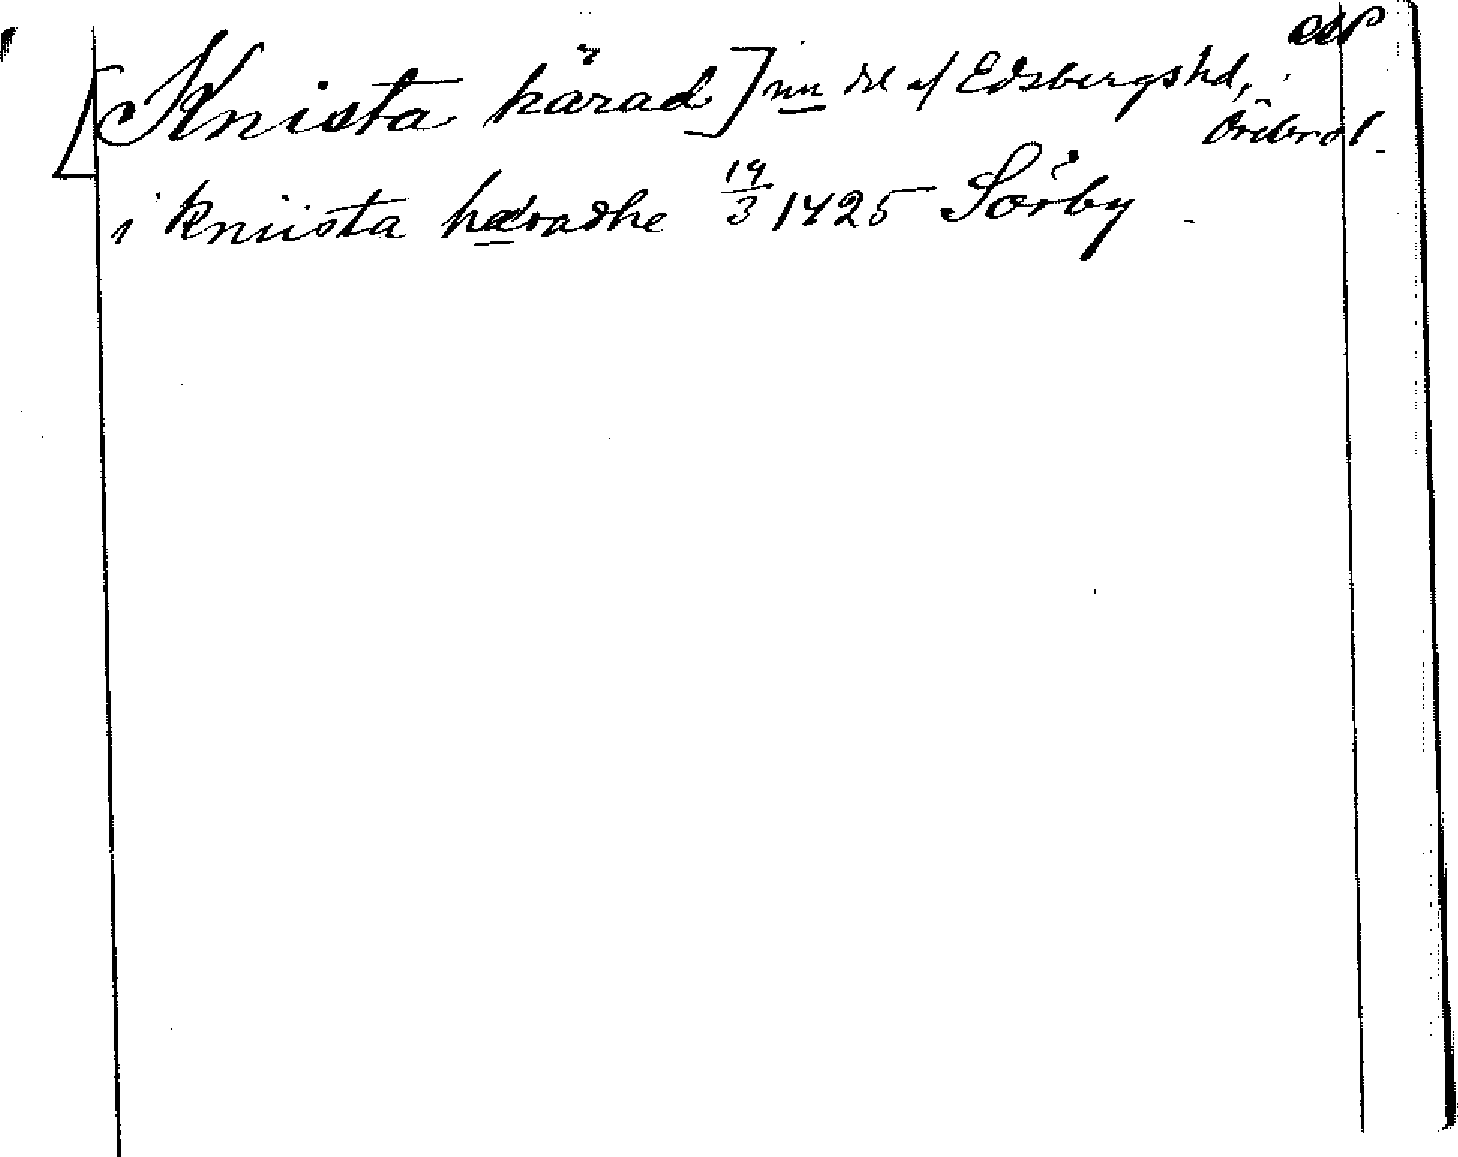 [Knista härad] nu del af Edsbergs hd, Örebro l.
i kniista hæradhe 19/3 1425 Sörby